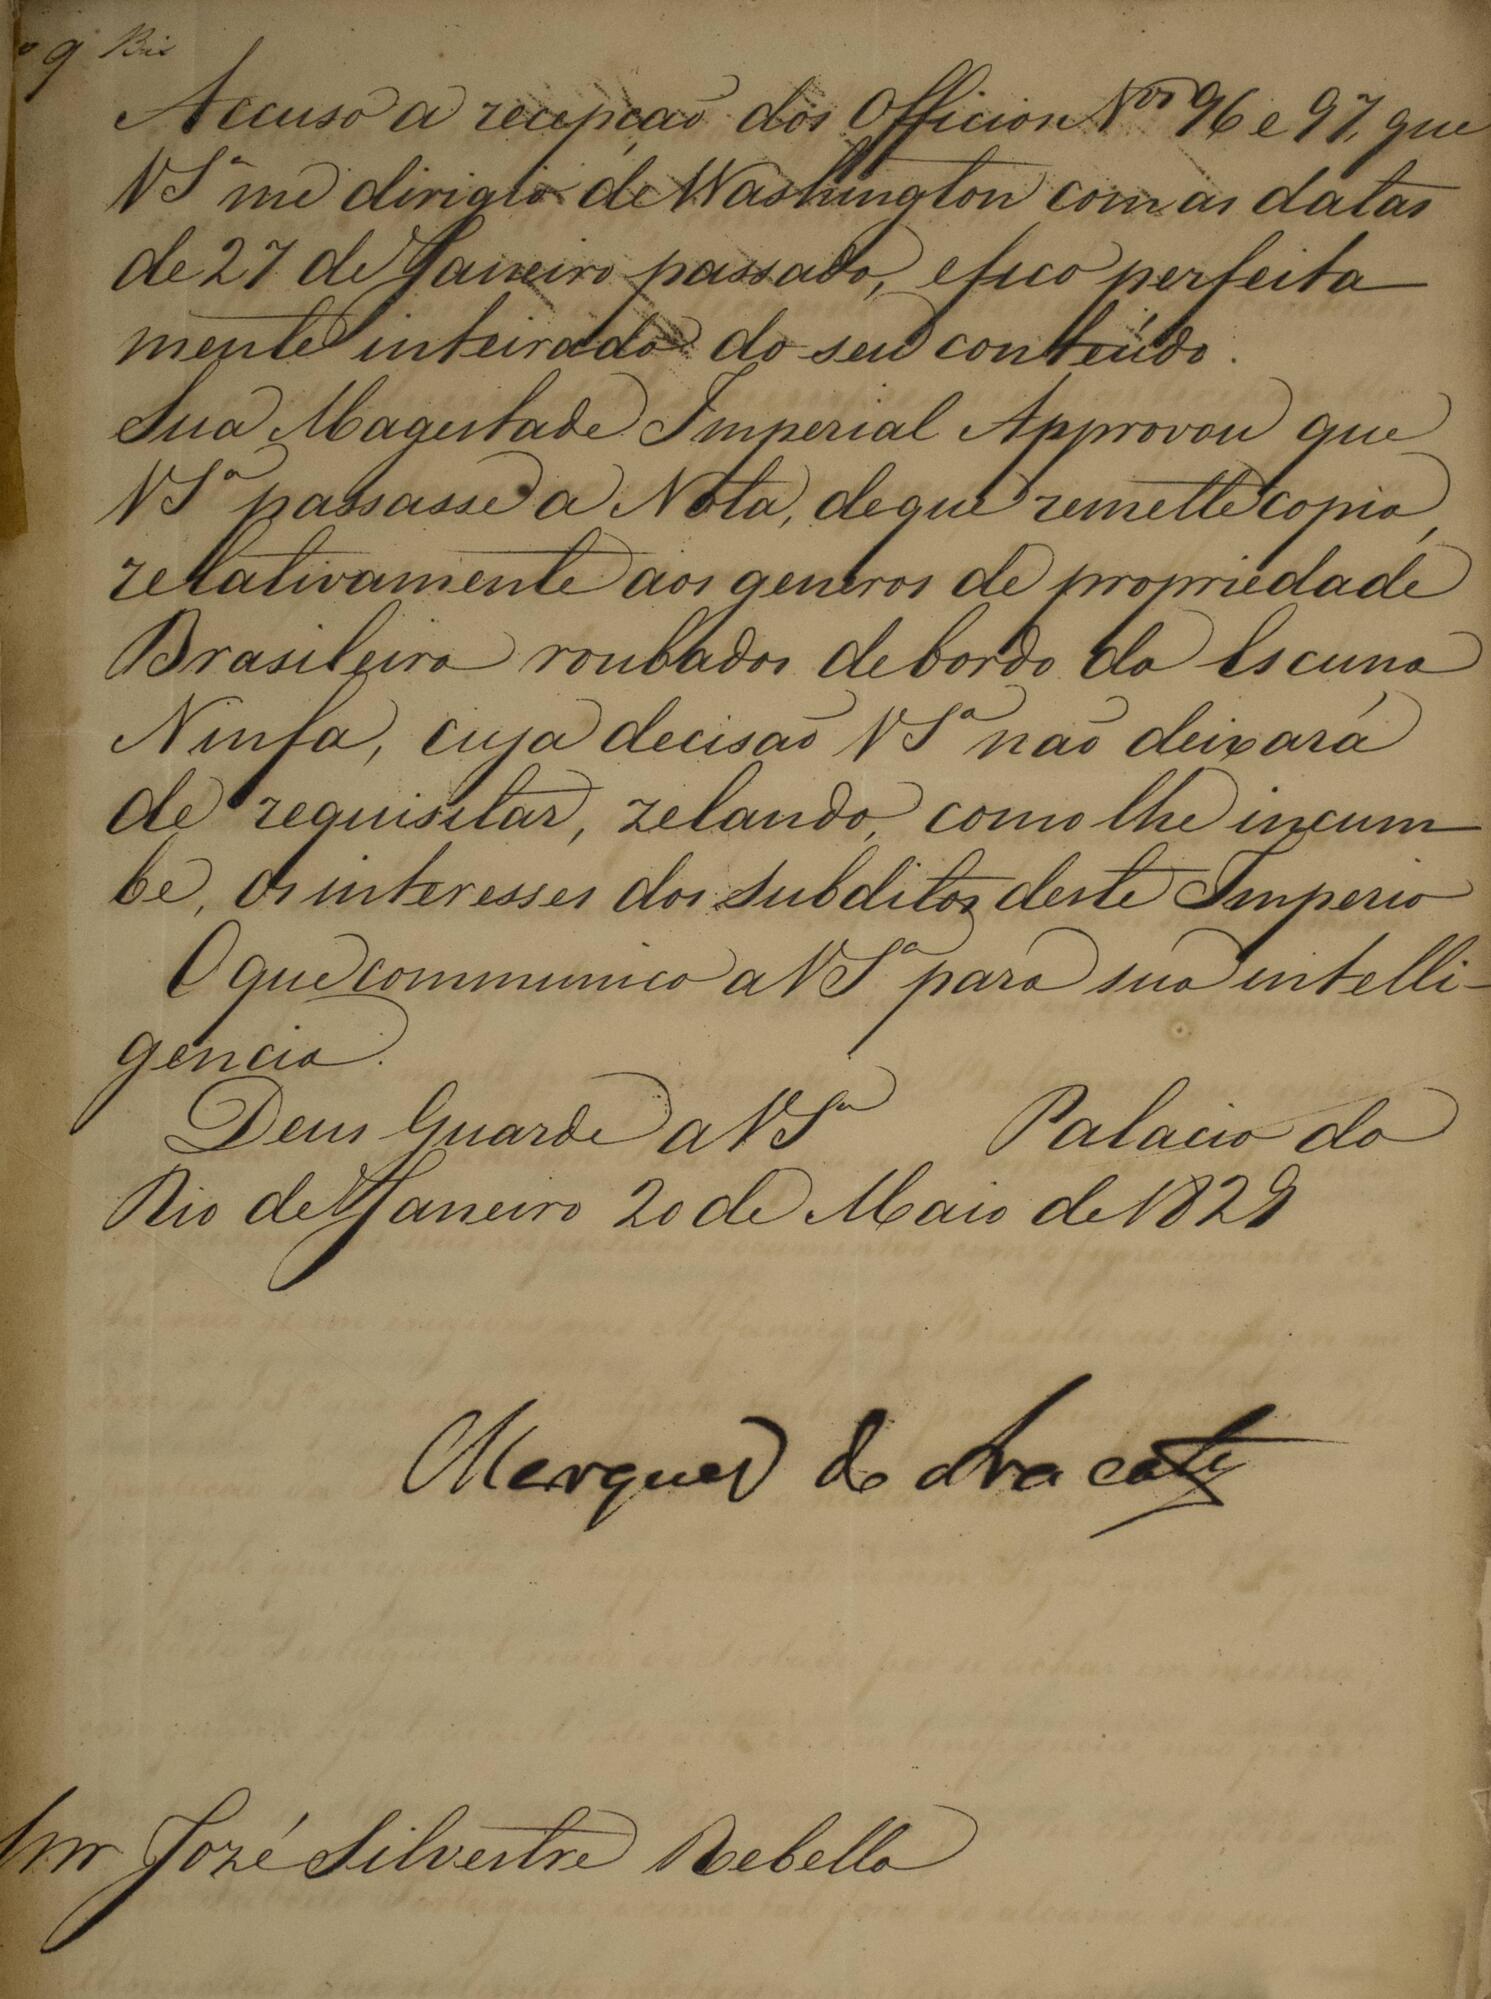 9 Bis
Accuso a recepção dos Officios Nos 96 e 97, que
VSª me dirigio de Washington com as datas
de 27 de Janeiro passado, e fico perfeita
mente inteirado do seu conteúdo.
Sua Magestade Imperial Approvou que
VSª passasse a Nota, de que remette copia,
relativamente aos generos de propriedade
Brasileira roubados de bordo da Escuna
Ninfa, cuja decisão VSª não deixará
de requisitar, zelando, como lhe incum
be, os interesses dos subditos deste Imperio
O que communico a VSª para sua intelli-
gencia.
Deus Guarde a VSª Palacio do
Rio de Janeiro 20 de Maio de 1829
Marquez do Aracaty
Snr José Silvestre Rebello